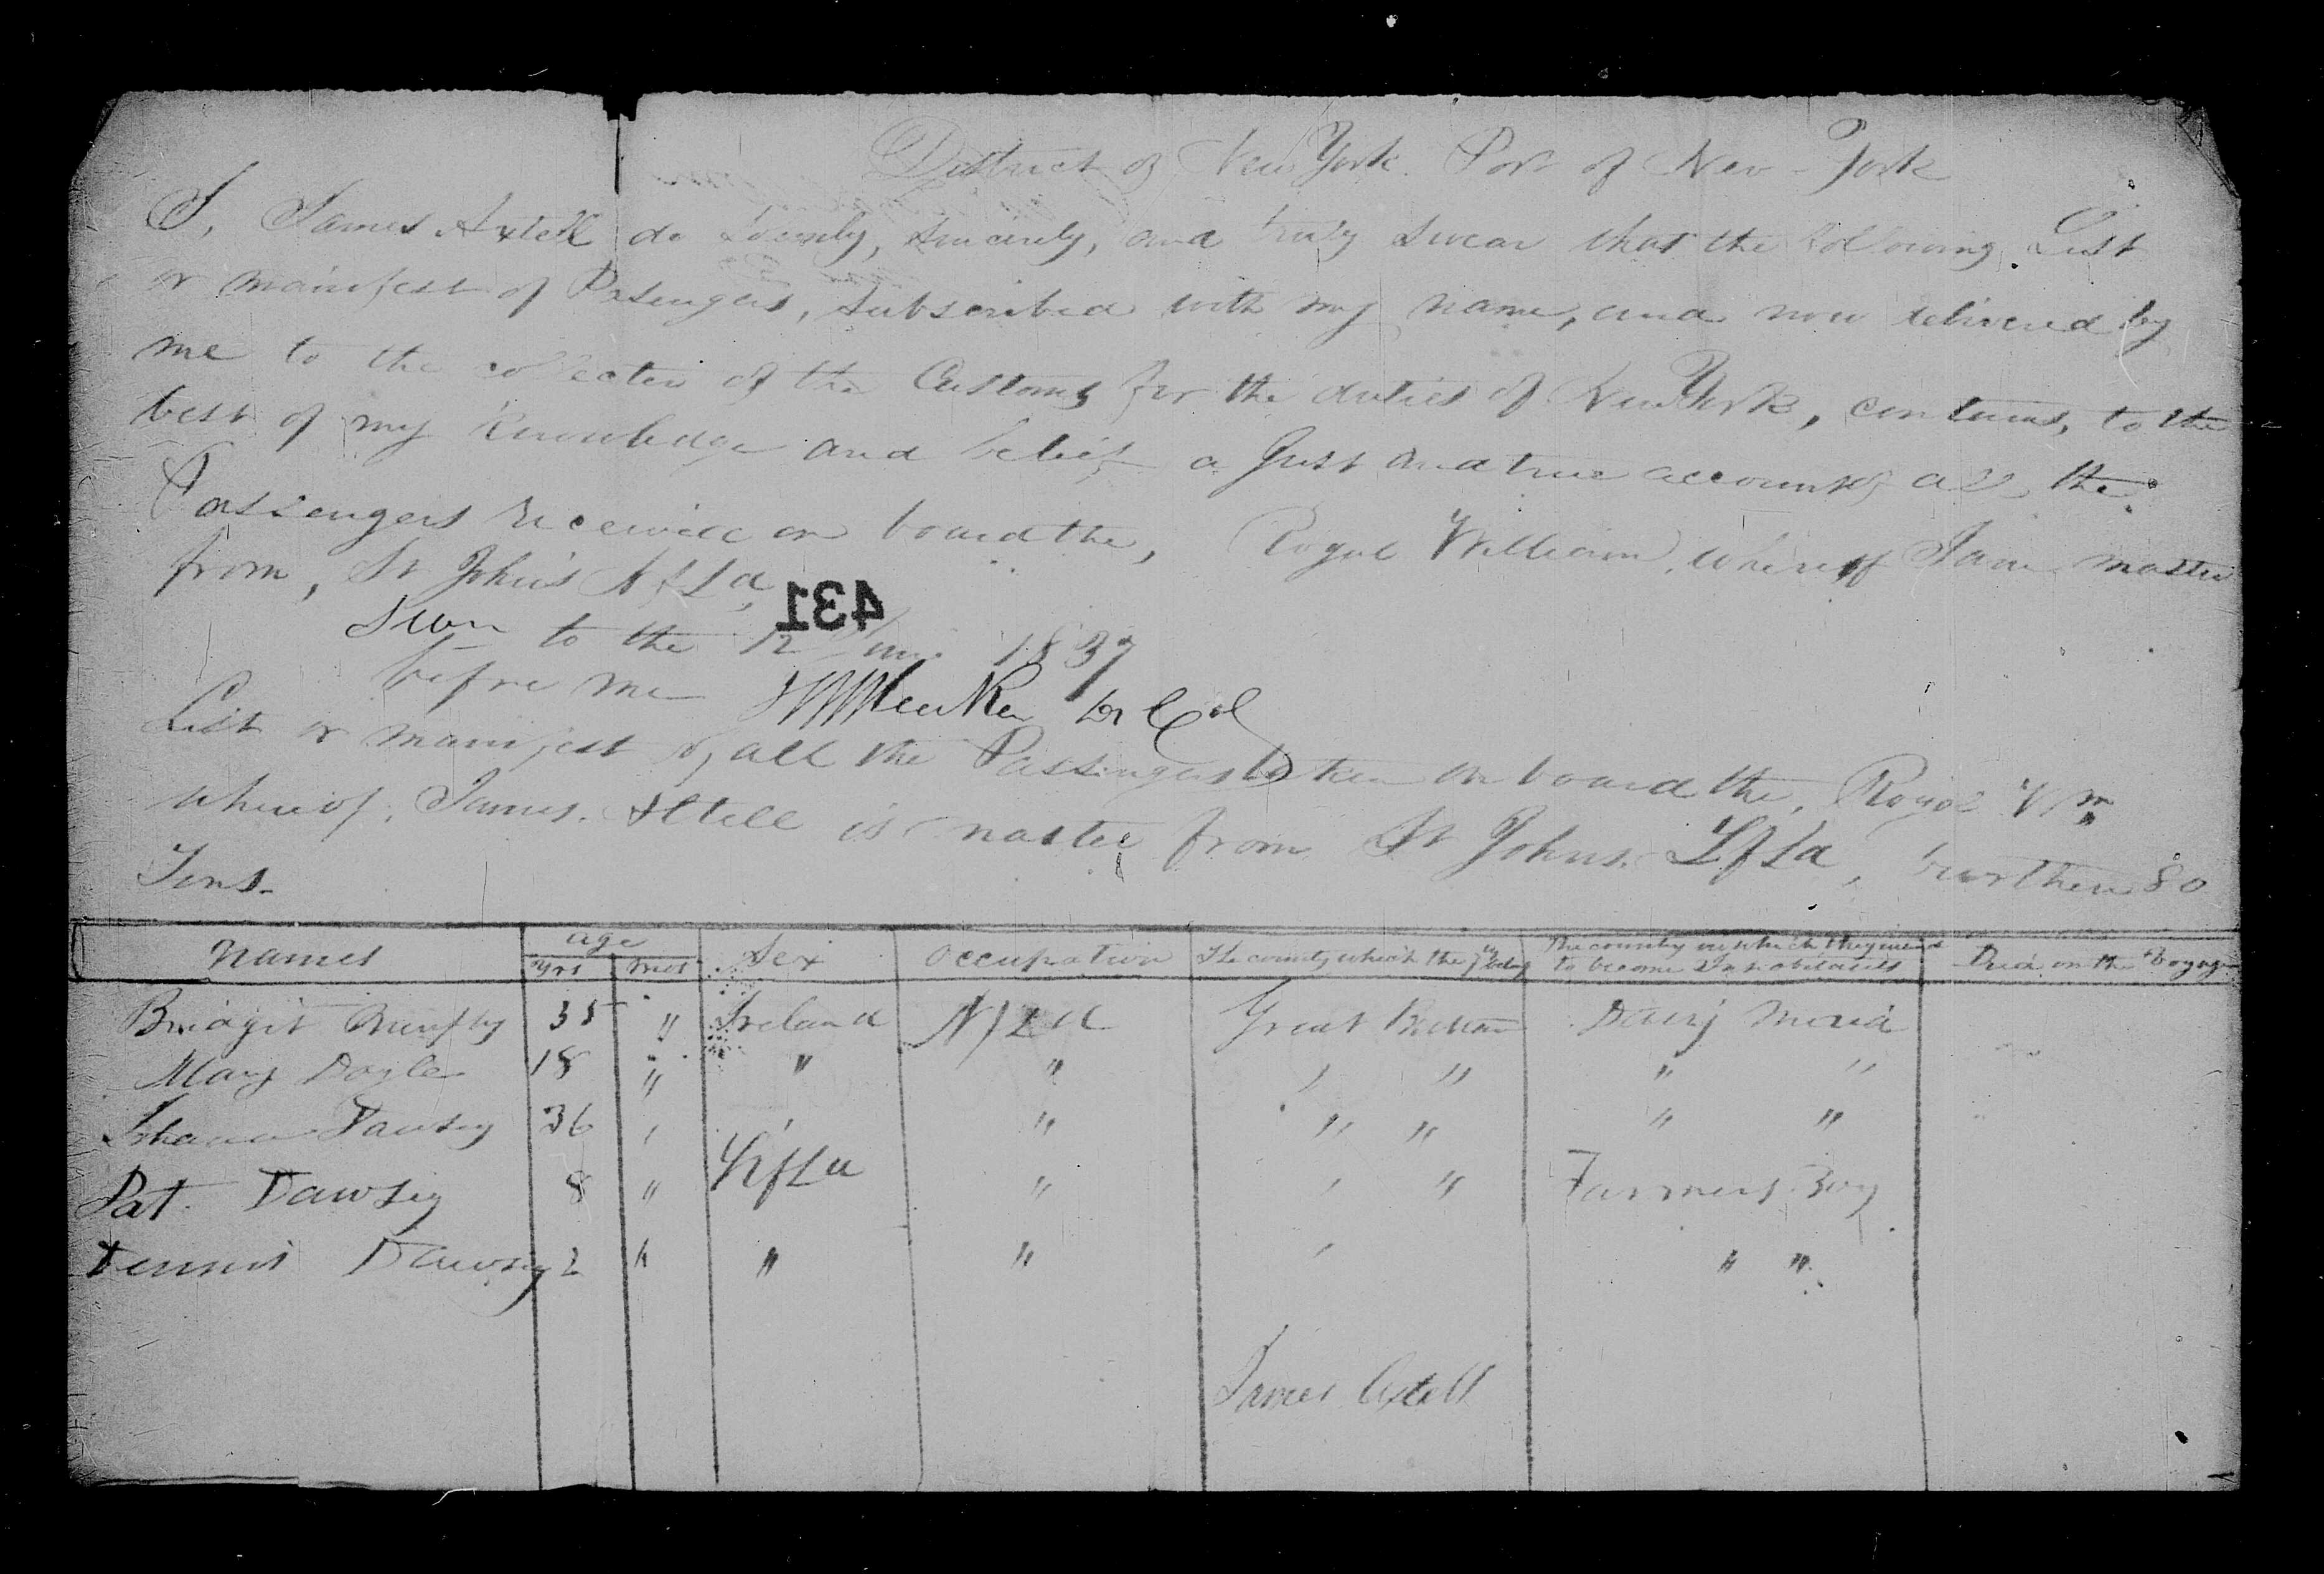 District of New York. Port of New-York
I, James Axtell do solemly, sincerely, and truly swear that the following List
or manifest of Pasengers, subscribed with my name, and now delivered by
me to the collecter of the Customs for the duties of New York, contains, to the
best of my knowledge and belief a Just and true account of all the
Passengers received on board the, Royal William, whereof Jame master
from, St John's Nfld,
431
Sworn to the 12 June 1837
before me
List or manifest of all the Passengers taken on board the, Royal Wm
whereof, James. Axtell is master from St Johns. Nfld, burthen 80
Tons.
names age Sex Occupation The country which they belong The country in which they intend Died on the Voyage
yrs mos to become Inhabitants
Bridgit 35 " Ireland Nfld Great Brittain Dairy Maid
Mary Doyle 18 " " " " " " "
Johanna Dawsey 36 " " " " " " "
Pat. Dawsey 8 " Nfld " " " Farmers Boy
Dennis Dawsey 2 " " " " " "
James Axtell